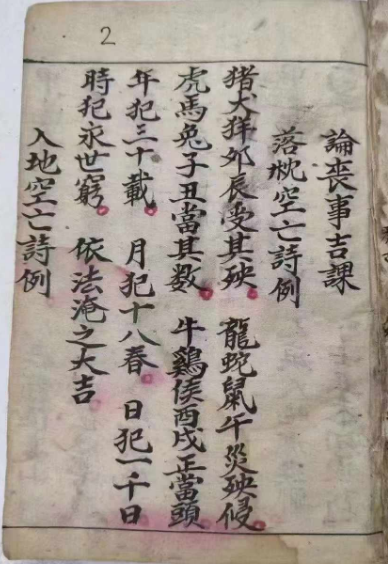 2
論喪事吉課
落枕空亡詩例
猪犬羊卯辰受其殃。龍蛇鼠午災殃侵。
虎馬兔子丑當其数。牛鷄侯酉戌正當頭
年犯三十載。月犯十八春。日犯一千日
時犯永世窮。依法淹之大吉
入地空亡詩例